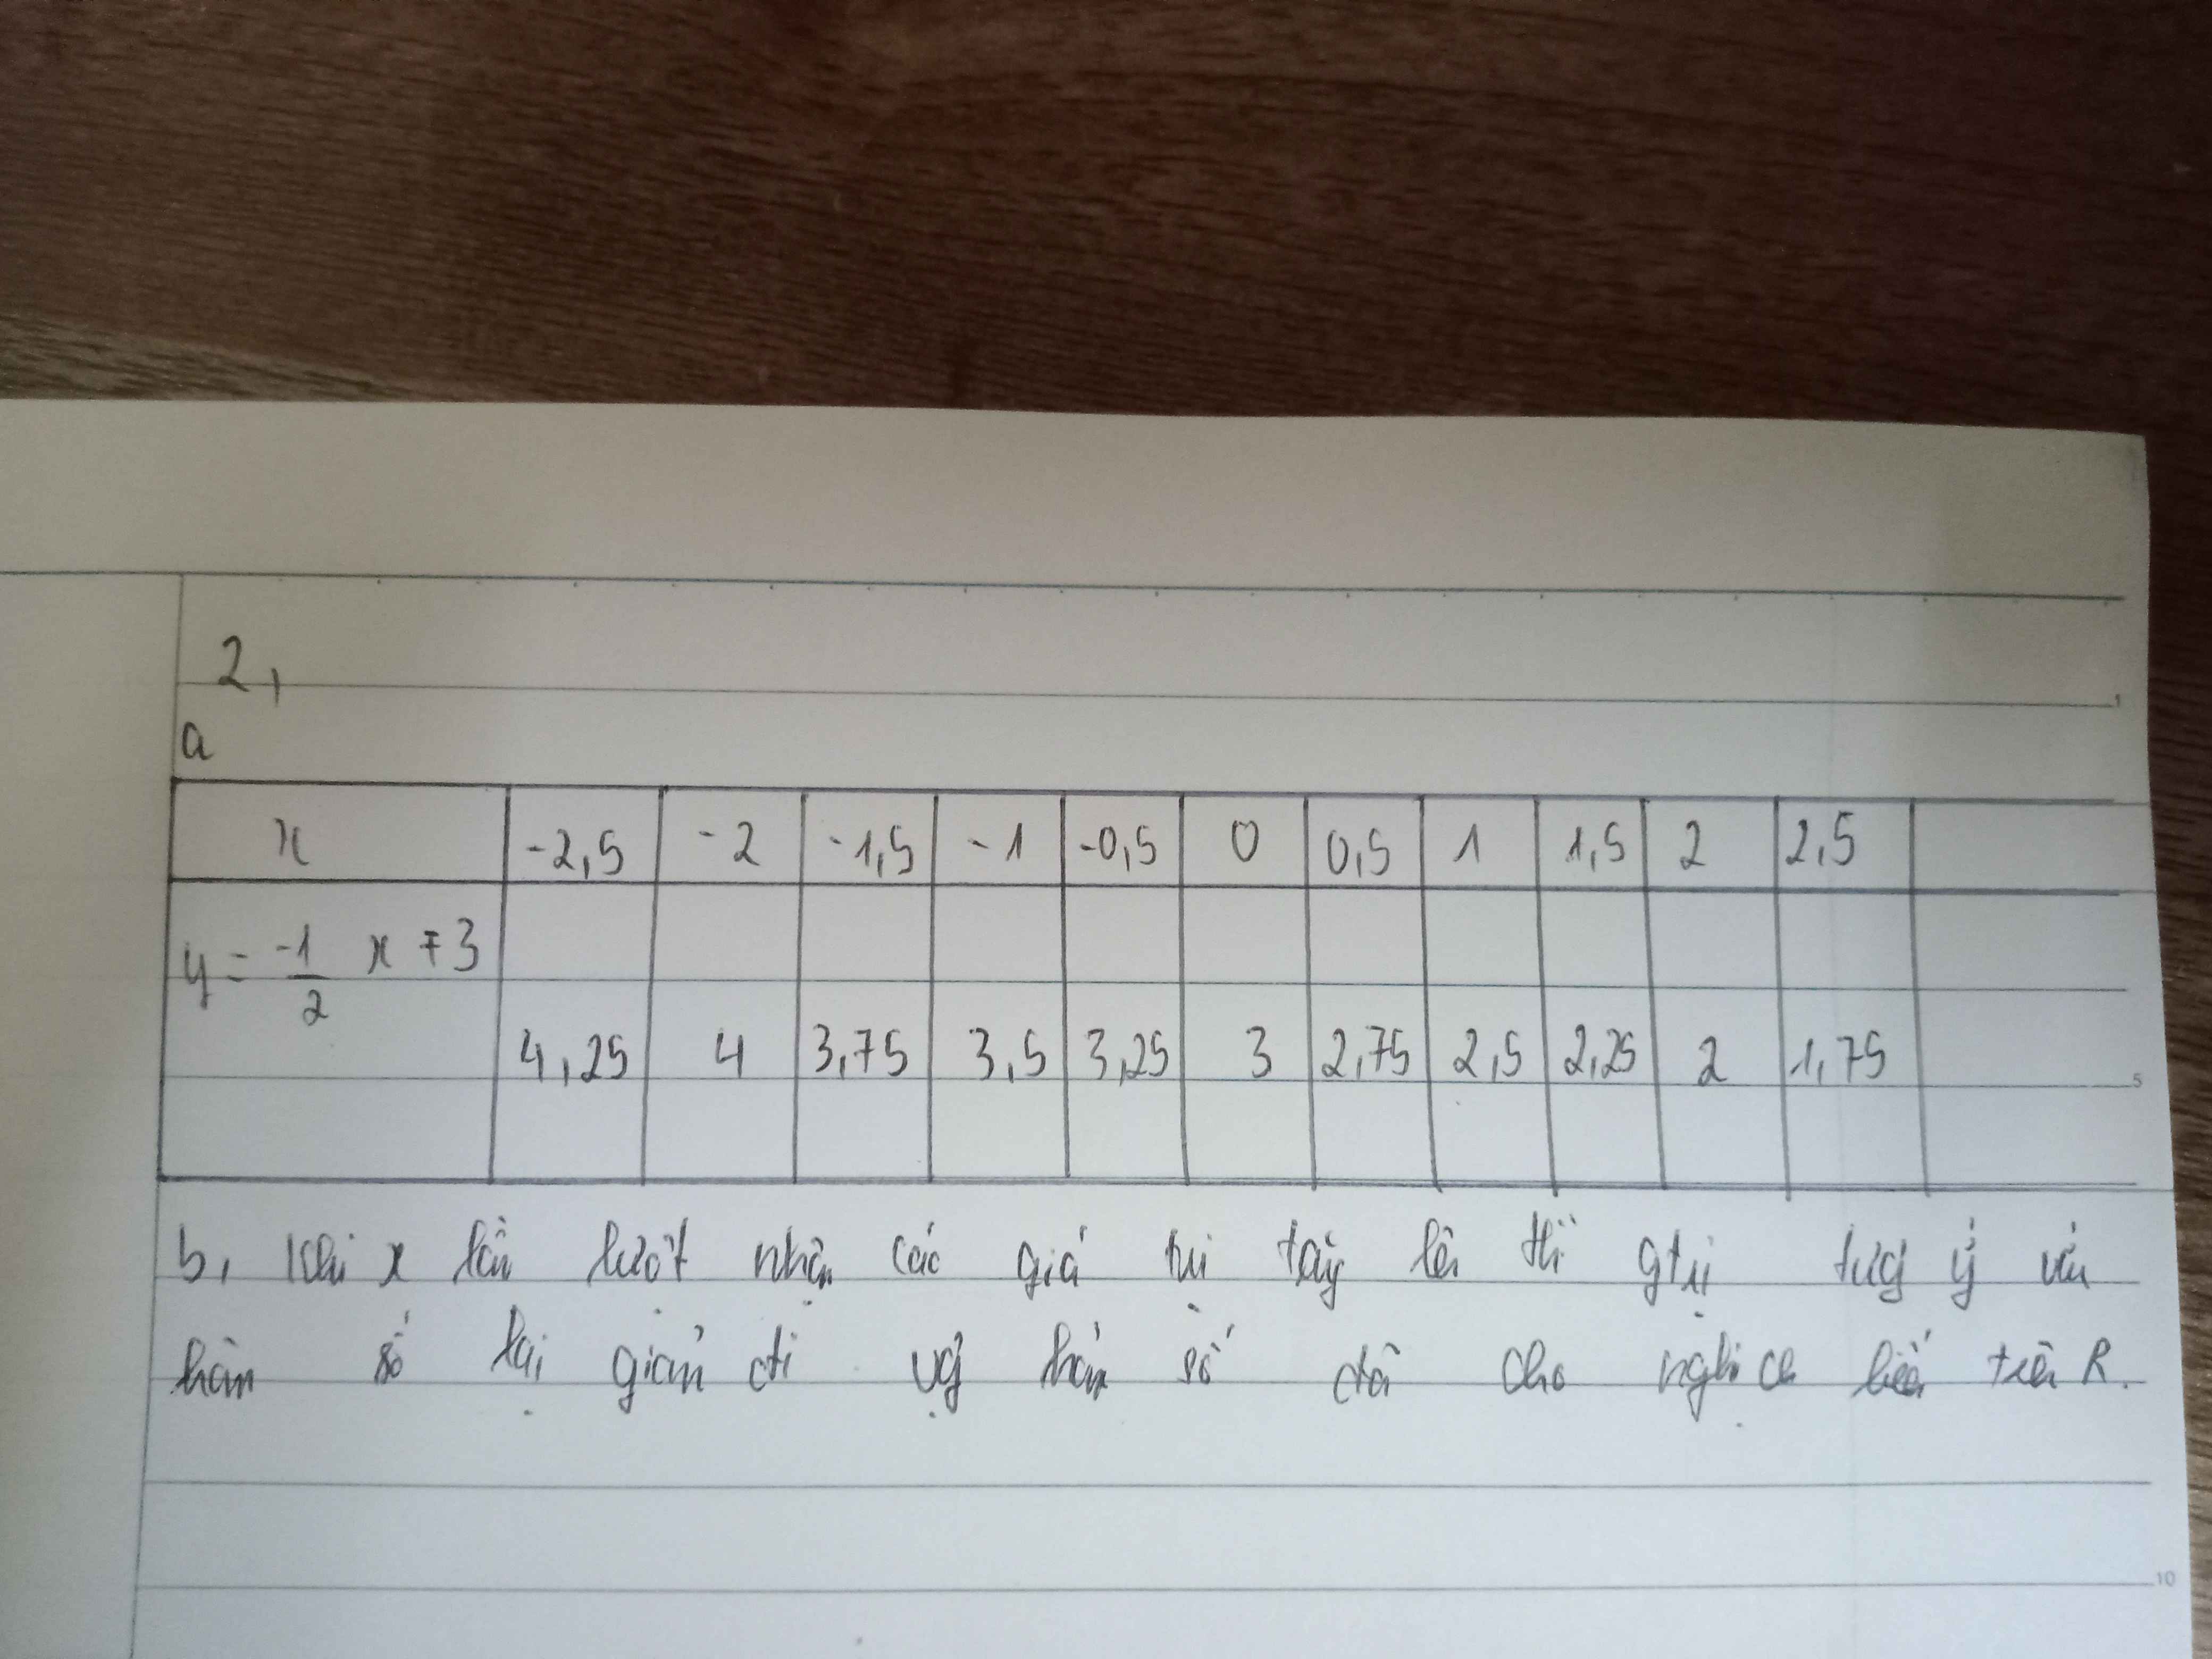 2,
a
x -2,5 -2 -1,5 -1 -0,5 0 0,5 1 1,5 2 2,5
y = -1/2 x + 3
4,25 4 3,75 3,5 3,25 3 2,75 2,5 2,25 2 1,75
b, Khi x lần lượt nhận các giá trị tăng lên thì gtrị tương ứng của
hàm số lại giảm đi vậy hàm số đã cho nghịch biến trên R.
1
5
10